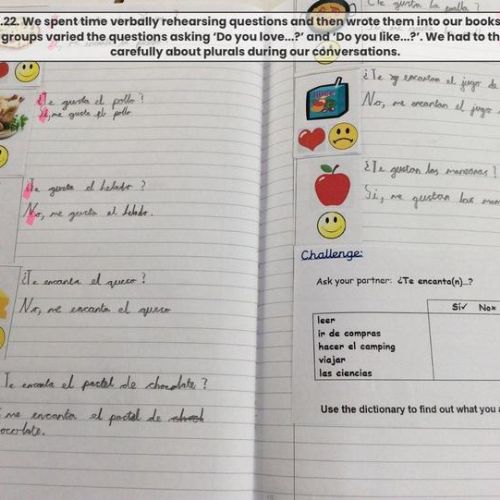 .22. We spent time verbally rehearsing questions and then wrote them into our books
groups varied the questions asking ‘Do you love...?’ and ‘Do you like...?’. We had to th
carefully about plurals during our conversations.
¿Te gusta el pollo?
Sí, me gusta el pollo
¿Te gusta el helado?
No, me gusta el helado.
¿Te encanta el queso?
No, me encanta el queso
Te encanta el pastel de chocolate?
me encanta el pastel de
ocorlate.
Te gusta la paella?
¿Te encantan el jugo de
No, me encantan el jugo
¿Te gustan las manzanas?
Sí, me gustan las man
Challenge:
Ask your partner: ¿Te encanta(n)..?
Sí✓ No×
leer
ir de compras
hacer el camping
viajar
las ciencias
Use the dictionary to find out what you a